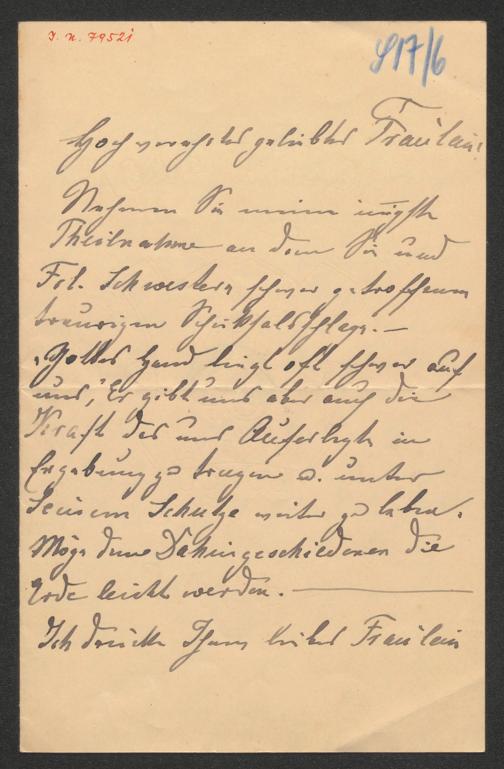 I. N. 79521
S17/6
Hochverehrtes geliebtes Fräulein!
Nehmen Sie meine innigste
Theilnahme an dem Sie und
Frl. Schwestern schwer getroffenen
traurigen Schicksalsschlage. —
„Gottes Hand liegt oft schwer auf
uns", Er gibt uns aber auch die
Kraft das uns Auferlegte in
Ergebung zu tragen u. unter
Seinem Schutze weiter zu leben.
Möge dem Dahingeschiedenen die
Erde leicht werden. —
Ich drücke Ihnen liebes Fräulein